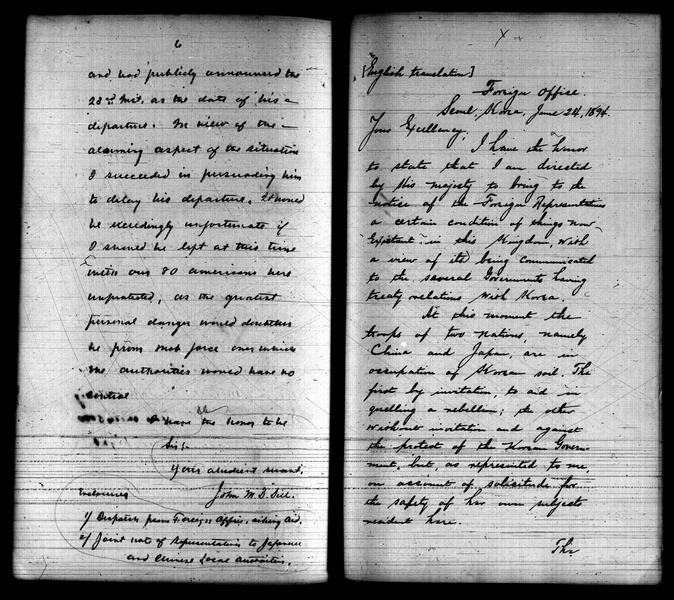 6
and had publicly announced the
23rd inst. as the date of his
departure. In view of the
alarming aspect of the situation
I succeeded in persuading him
to delay his departure. It would
be exceedingly unfortunate if
I should be left at this time
with our 80 americans here
unprotected, as the greatest
personal danger would doubtless
be from mob force over which
the authorities would have no
control
I have the honor to be
Sir:
Your obedient servant,
John M. B. Sill.
Enclosures
1/ Dispatch from Foreign Office, asking aid.
2/ Joint note of Representatives to Japanese
and Chinese Local Authorities.
[English translation]
Foreign Office.
Seoul, Korea, June 24, 1894.
Your Excellency.
I have the honor
to state that I am directed
by His majesty to bring to the
notice of the Foreign Representatives
a certain condition of things now
Existent in this Kingdom, with
a view of its being communicated
to the several Governments having
treaty relations with Korea.
At this moment the
troops of two nations, namely
China and Japan, are in
occupation of Korean soil. The
first by invitation, to aid in
quelling a rebellion; the other
without invitation and against
the protest of the Korean Govern-
ment, but, as represented to me,
on account of solicitude for
the safety of her own subjects
resident here.
The